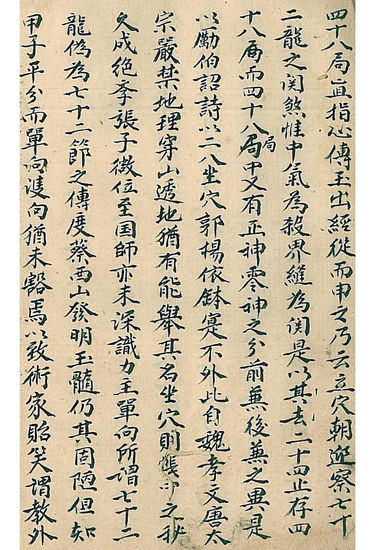 四十八局直指心傳玉出經從而申之乃云立穴朝迎察七十
二龍之関煞惟中氣為殺界縫為関是以其去二十四止存四
十八局而四十八局中又有正神零神之分前兼後兼之異是
以勵伯詔詩以二八坐穴郭楊依鉢寔不外此自魏孝文唐太
宗嚴禁地理穿山透地猶有能舉其名坐穴則張中之秘
久成絶李張子微位至国師亦未深識力主單向所謂七十二
龍偽為七十二節之傳度蔡西山發明玉髓仍其固陋但知
甲子平分而單向𨾏向猶未豁焉以致術家貽笑謂教外